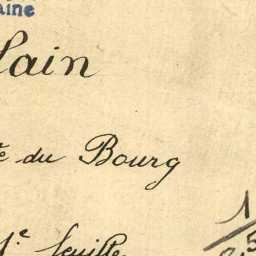 aine
lain
te du Bourg
1
1e feuille
5